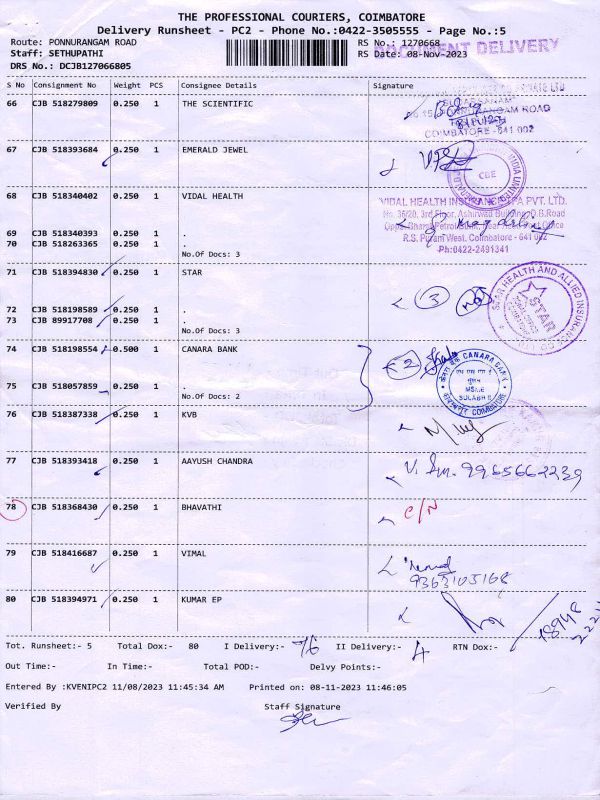 THE PROFESSIONAL COURIERS, COIMBATORE
Delivery Runsheet - PC2 - Phone No.:0422-3505555 - Page No.:5
Route: PONNURANGAM ROAD RS No.: 1270668
DOCUMENT DELIVERY
Staff: SETHUPATHI RS Date: 08-Nov-2023
DRS No.: DCJB127066805
S No Consignment No Weight PCS Consignee Details Signature
66 CJB 518279809 0.250 1 THE SCIENTIFIC
COIMBATORE - 641 002
67 CJB 518393684 0.250 1 EMERALD JEWEL
CBE
68 CJB 518340402 0.250 1 VIDAL HEALTH
VIDAL HEALTH INSURANCE TPA PVT. LTD.
No. 36/20, 3rd Floor, Ashirwad Building, D.B.Road
R.S. Puram West, Coimbatore - 641 002
Ph:0422-2491341
69 CJB 518340393 0.250 1 .
70 CJB 518263365 0.250 1 .
No.Of Docs: 3
71 CJB 518394830 0.250 1 STAR
3
STAR HEALTH AND ALLIED INSURANCE CO LTD
STAR
72 CJB 518198589 0.250 1 .
73 CJB 89917708 0.250 1 .
No.Of Docs: 3
74 CJB 518198554 0.500 1 CANARA BANK
2
CANARA BANK
MSME
SULABH
COIMBATORE
75 CJB 518057859 0.250 1 .
No.Of Docs: 2
76 CJB 518387338 0.250 1 KVB
77 CJB 518393418 0.250 1 AAYUSH CHANDRA
9965662239
78 CJB 518368430 0.250 1 BHAVATHI
C/N
79 CJB 518416687 0.250 1 VIMAL
9363105168
80 CJB 518394971 0.250 1 KUMAR EP
Tot. Runsheet:- 5 Total Dox:- 80 I Delivery:- 76 II Delivery:- 4 RTN Dox:-
Out Time:- In Time:- Total POD:- Delvy Points:-
Entered By :KVENIPC2 11/08/2023 11:45:34 AM Printed on: 08-11-2023 11:46:05
Verified By Staff Signature